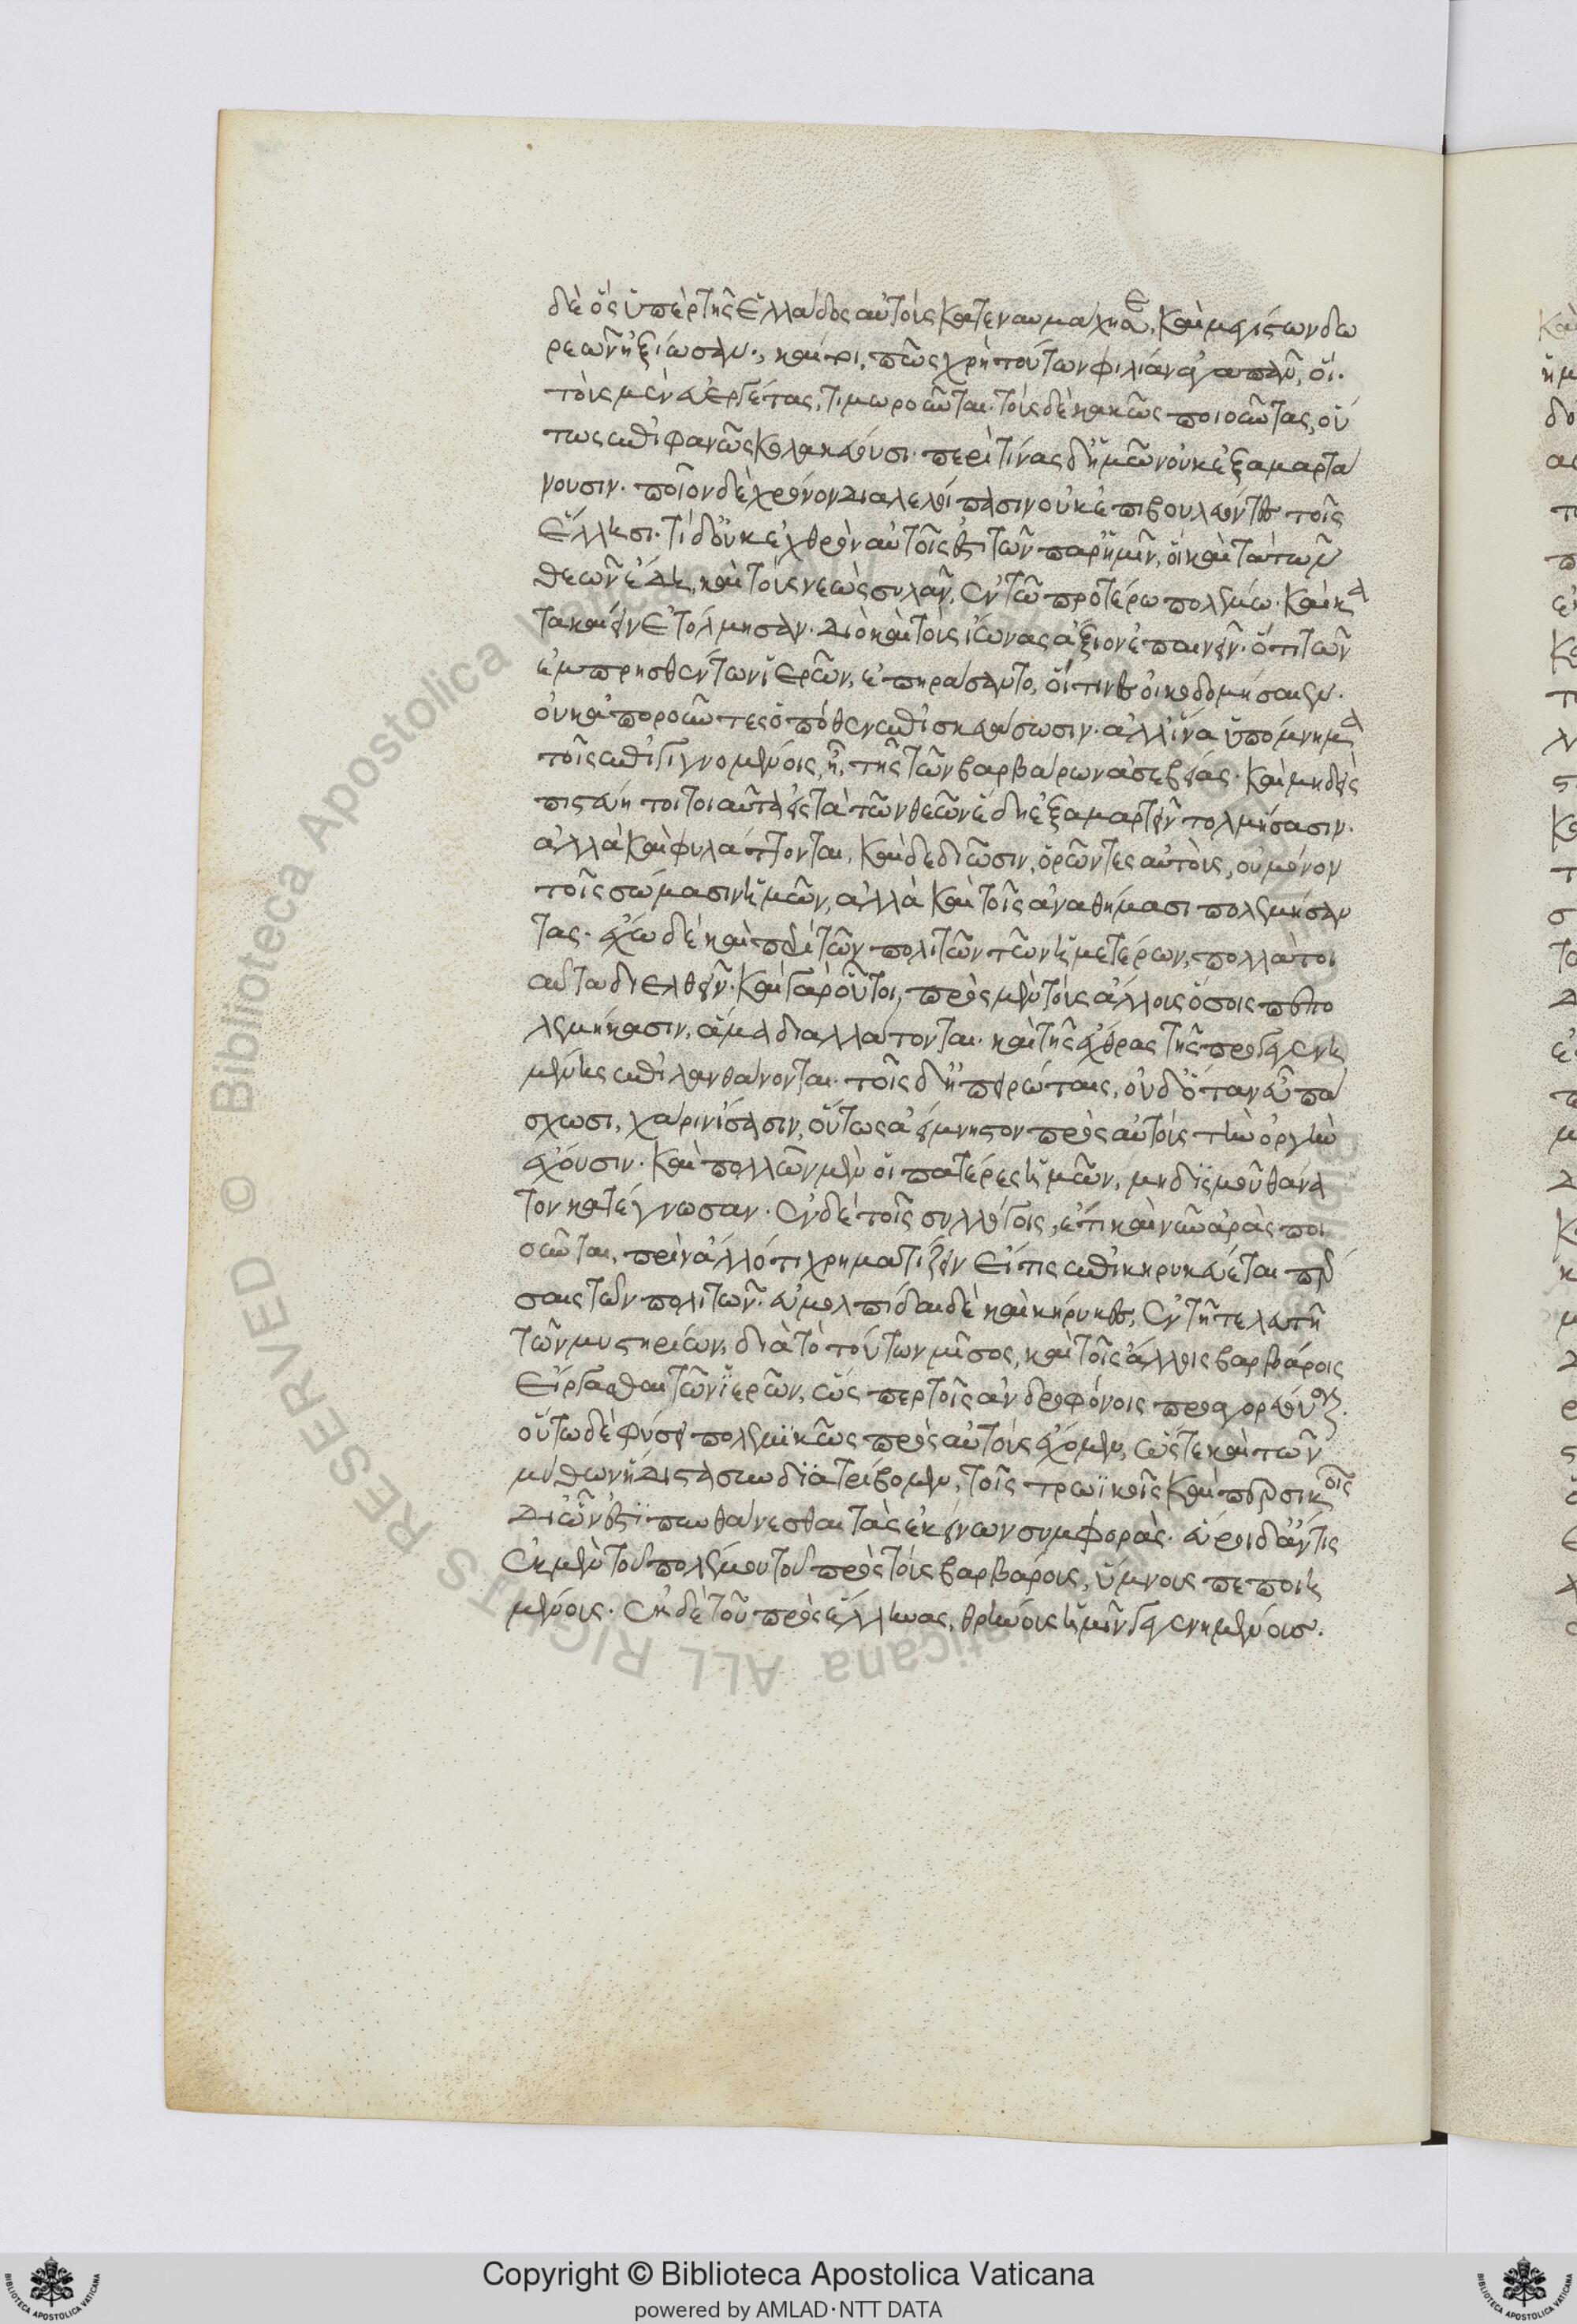 δὲ ὃς ὑπὲρ τῆς Ἑλλάδος αὐτοὺς κατεναυμάχησε, καὶ μεγίστων δω
ρεῶν ἠξίωσαν., καίτοι, πῶς χρὴ τούτων φιλίαν ἀγαπᾶν, οἳ.
τοὺς μὲν εὐεργέτας, τιμωροῦνται. τοὺς δὲ κακῶς ποιοῦντας, οὕ
τως ἐπιφανῶς κολακεύουσι. περὶ τίνας δ' ἡμῶν οὐκ ἐξαμαρτά
νουσιν. ποῖον δὲ χρόνον διαλελοίπασιν οὐκ ἐπιβουλεύοντες τοῖς
Ἕλλησι. τί δ' οὐκ ἐχθρὸν αὐτοῖς ἐστὶ τῶν παρ' ἡμῖν, οἳ καὶ τὰ τῶν
θεῶν ἕδη, καὶ τοὺς νεὼς συλᾶν, ἐν τῷ προτέρω πολέμω. καὶ κα
τακαίειν ἐτόλμησαν. διὸ καὶ τοὺς ἴωνας ἄξιον ἐπαινεῖν. ὅτι τῶν
ἐμπρησθέντων ἱερῶν, ἐπηράσαντο, οἵτινες οἰκοδομήσαιεν.
οὐκ ἀποροῦντες ὁπόθεν ἐπισκευάσωσιν. ἀλλ' ἵνα ὑπόμνημα
τοῖς ἐπιγιγνομένοις, ᾖ, τῆς τῶν βαρβάρων ἀσεβείας. καὶ μηδεὶς
πιστεύῃ τοῖς τοιαῦτα εἰς τὰ τῶν θεῶν ἕδη ἐξαμαρτεῖν τολμήσασιν.
ἀλλὰ καὶ φυλάττονται, καὶ δεδιῶσιν, ὁρῶντες αὐτοὺς, οὐ μόνον
τοῖς σώμασιν ἡμῶν, ἀλλὰ καὶ τοῖς ἀναθήμασι πολεμήσαν
τας. ἔχω δὲ καὶ περὶ τῶν πολιτῶν τῶν ἡμετέρων, πολλὰ τοι
αῦτα διελθεῖν. καὶ γὰρ οὗτοι, πρὸς μὲν τοὺς ἄλλους ὅσοις πεπο
λεμήκασιν, ἅμα διαλλάτονται. καὶ τῆς ἔχθρας τῆς προγεγενη
μένης ἐπιλανθάνονται. τοῖς δ' ἠπειρώταις, οὐδ' ὅταν εὖ πά
σχωσι, χάριν ἴσασιν, οὕτως ἀείμνηστον πρὸς αὐτοὺς τὴν ὀργὴν
ἔχουσιν. καὶ πολλῶν μὲν οἱ πατέρες ἡμῶν, μηδϊσμοῦ θάνα
τον κατέγνωσαν. ἐν δὲ τοῖς συλλόγοις, ἔτι καὶ νῦν ἀρὰς ποι
οῦνται, πρὶν ἄλλό τι χρηματίζειν εἴ τις ἐπικηρυκεύεται πέρ
σαις τῶν πολιτῶν. εὐμολπίδαι δὲ καὶ κήρυκες, ἐν τῇ τελετῇ
τῶν μυστηρίων, διὰ τὸ τούτων μῖσος, καὶ τοῖς ἄλλοις βαρβάροις
εἴργεσθαι τῶν ἱερῶν, ὥσπερ τοῖς ἀνδροφόνοις προαγορεύουσιν.
οὕτω δὲ φύσει πολεμϊκῶς πρὸς αὐτοὺς ἔχομεν, ὥστε καὶ τῶν
μύθων ἥδιστα συνδϊατρίβομεν, τοῖς τρωϊκοῖς καὶ περσικοῖς
δι' ὧν ἔστϊ πυνθάνεσθαι τὰς ἐκείνων συμφοράς. εὕροι δ' ἄν τις
ἐκ μὲν τοῦ πολέμου τοῦ πρὸς τοὺς βαρβάρους, ὕμνους πεποιη
μένους. ἐκ δὲ τοῦ πρὸς ἕλληνας, θρήνους ἡμῖν γεγενημένους.
Copyright © Biblioteca Apostolica Vaticana
powered by AMLAD·NTT DATA